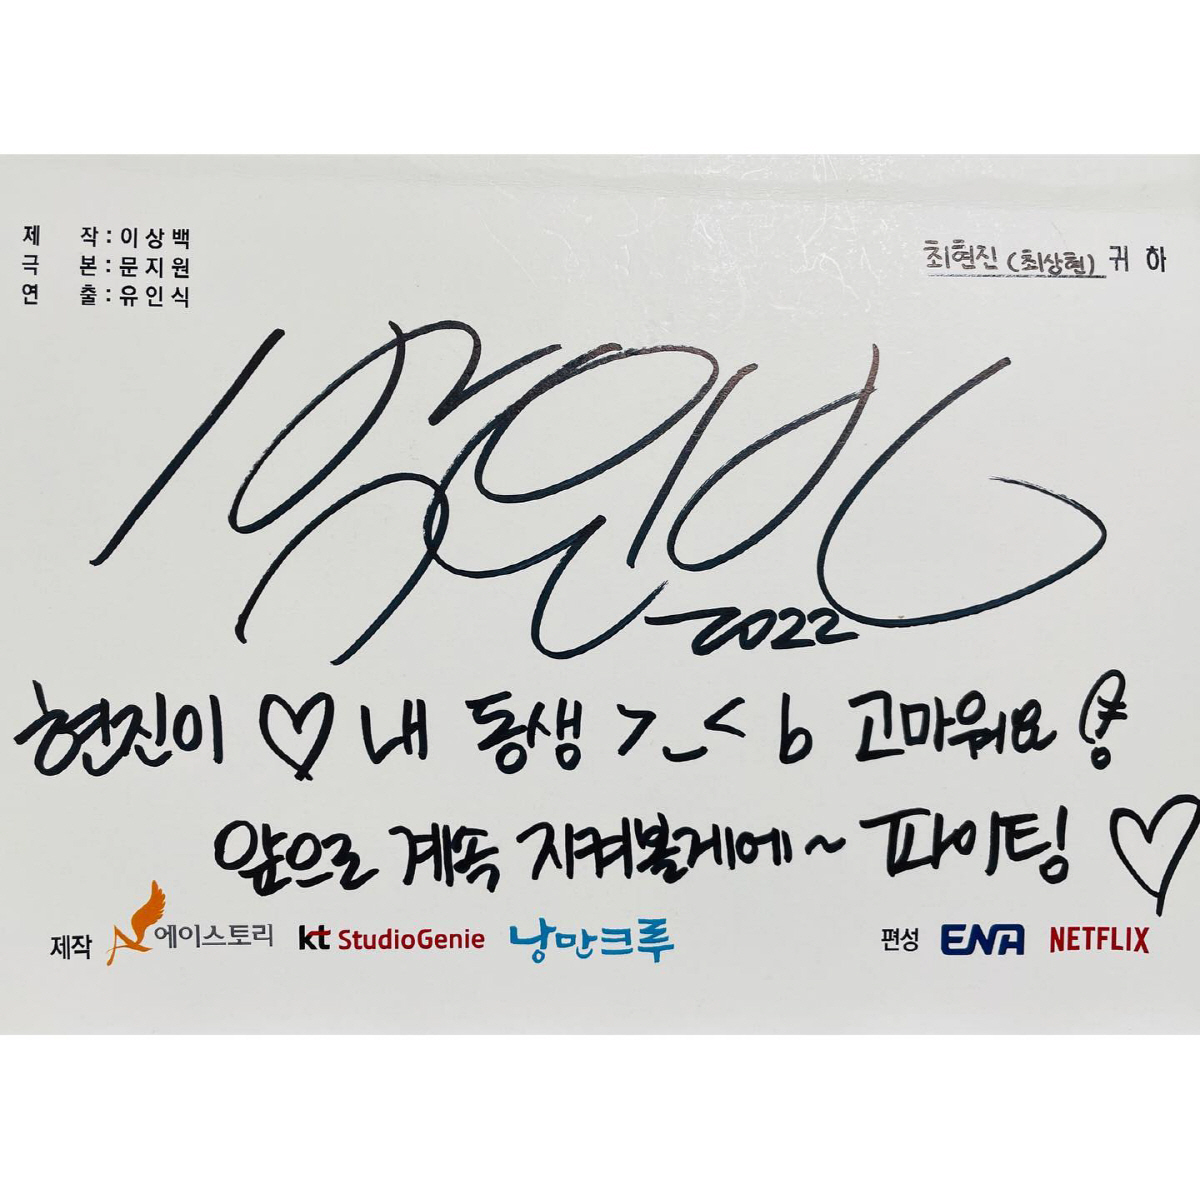 제 작 : 이상백
극 본 : 문지원
연 출 : 유인식
최현진 (최상현) 귀하
2022
현진이 ♡ 내 동생 >_< b 고마워요
앞으로 계속 지켜볼게에~ 파이팅 ♡
제작 에이스토리 kt StudioGenie 낭만크루 편성 ENA NETFLIX